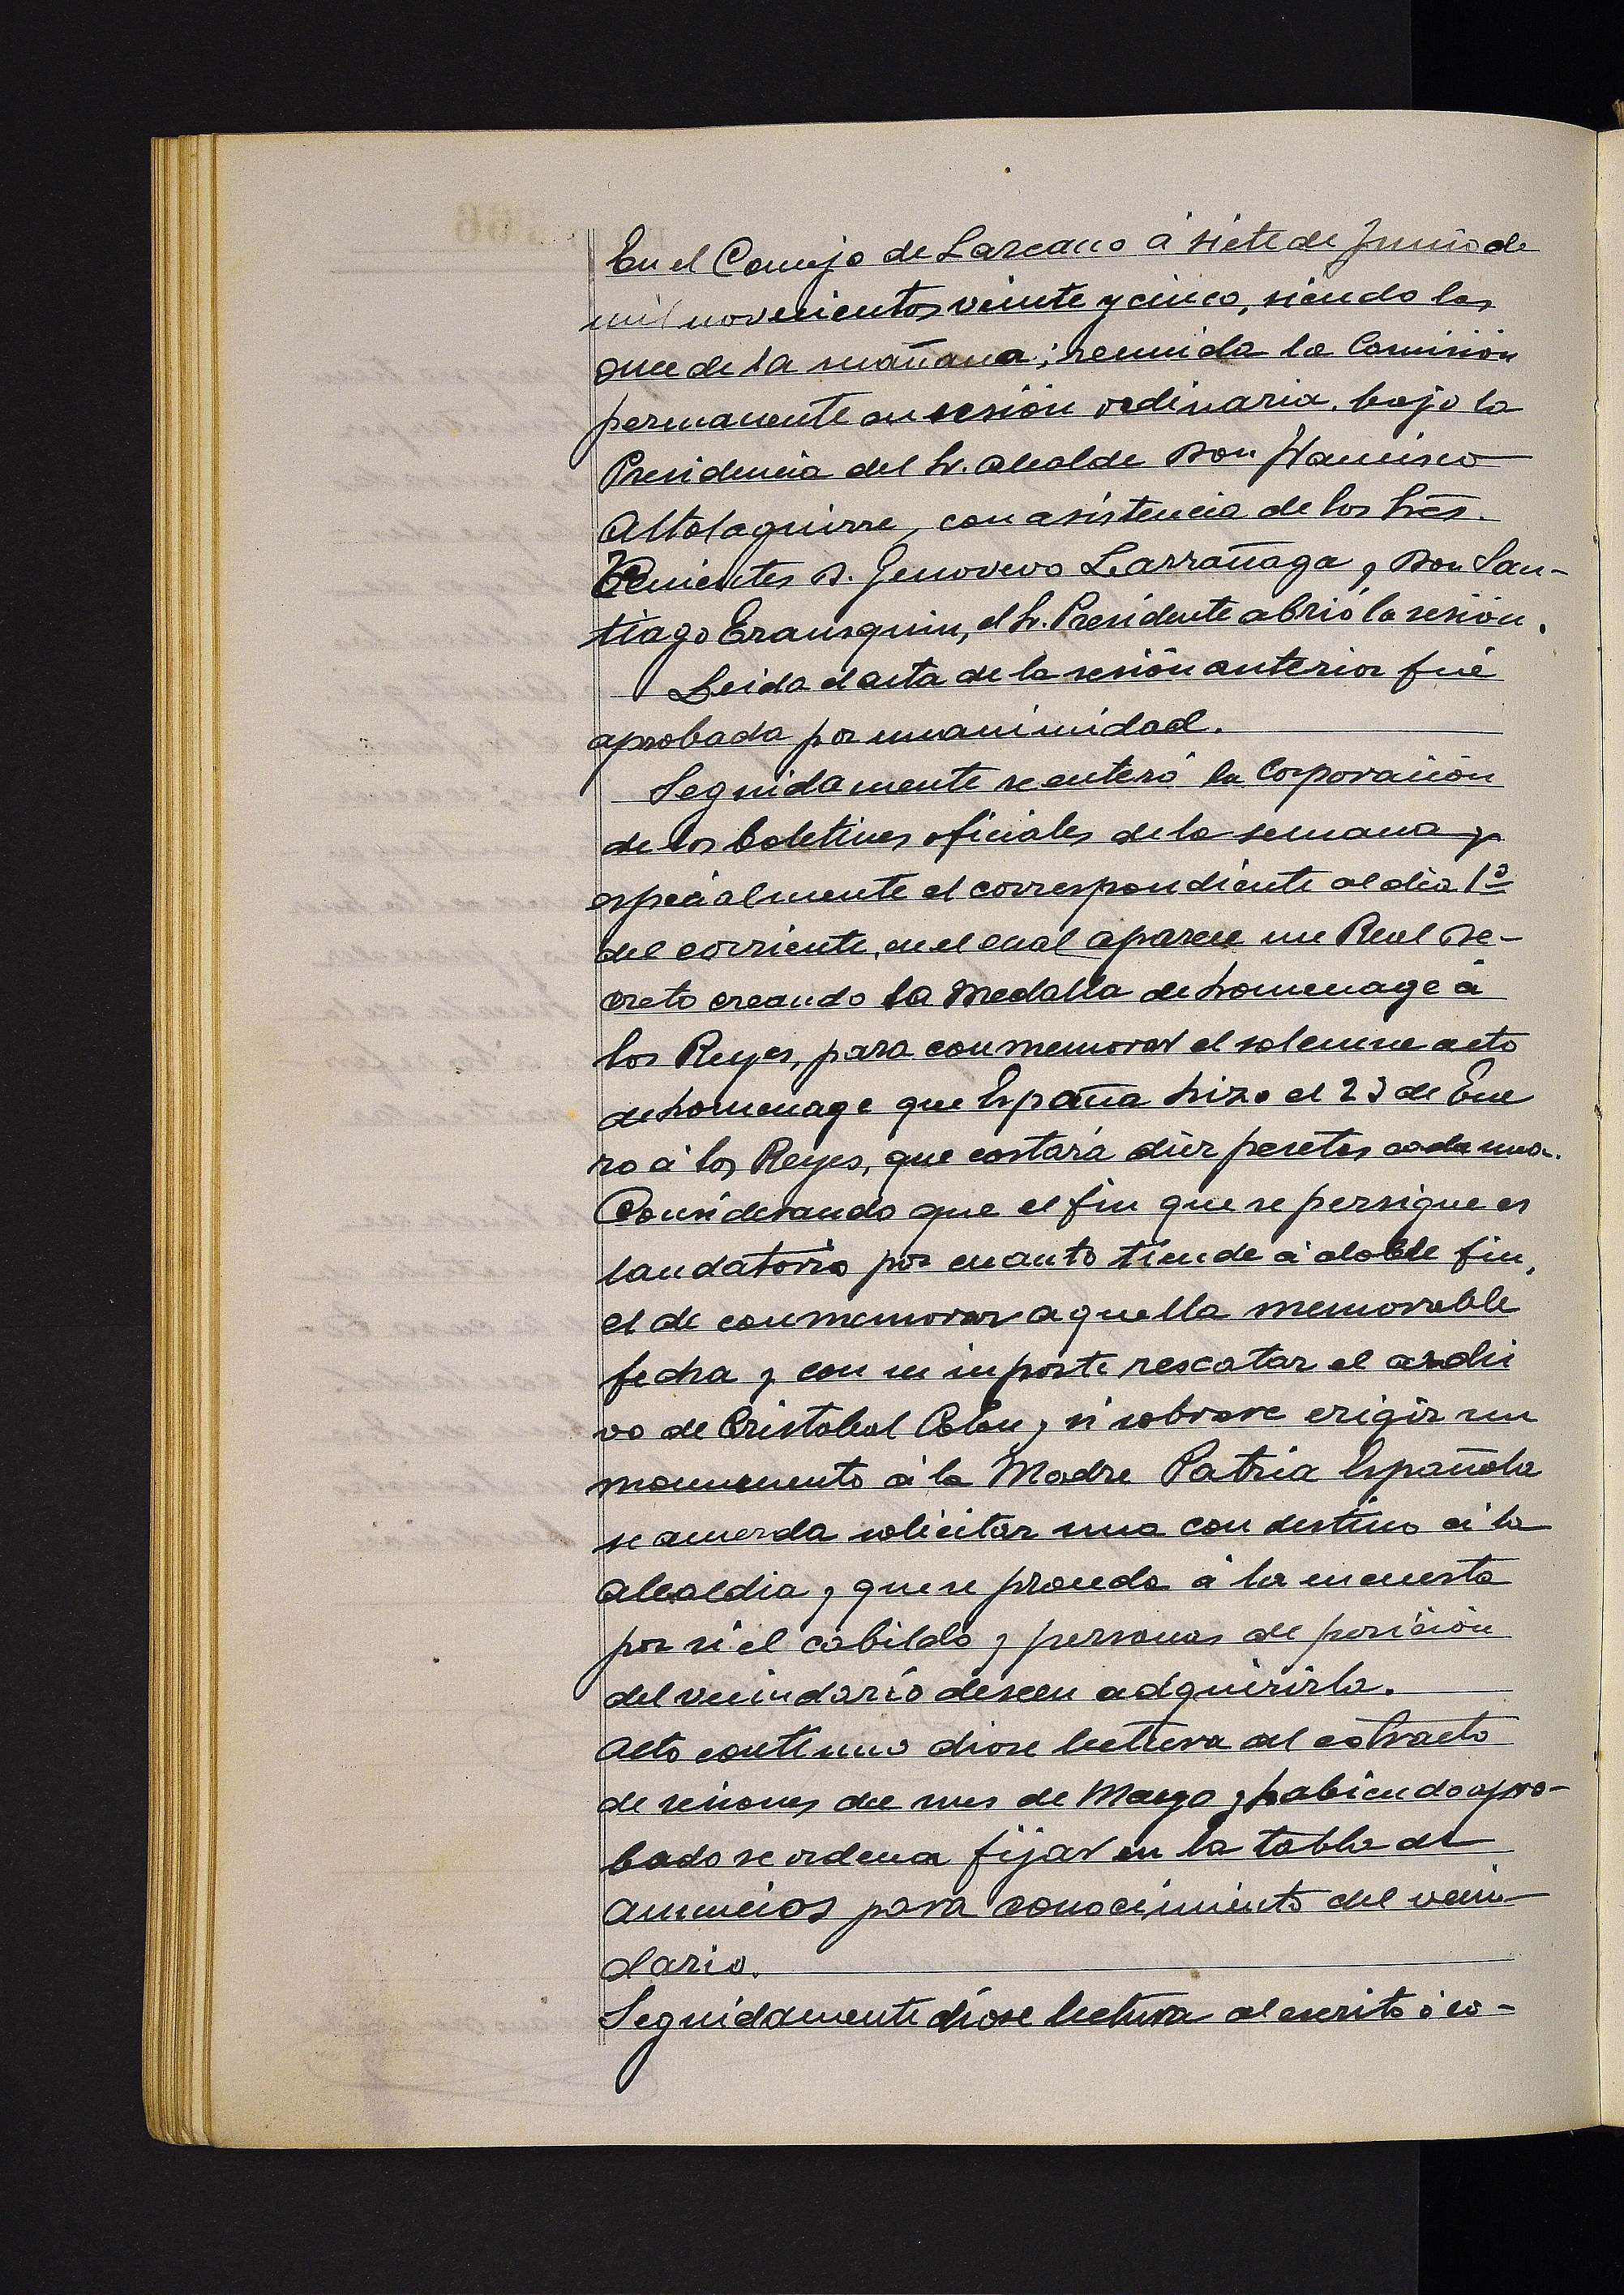 En el Concejo de Lazcano á siete de Junio de
mil novecientos veinte y cinco, siendo las
once de la mañana; reunida la Comisión
permanente en sesión ordinaria, bajo la
Presidencia del Sr. Alcalde Don Francisco
Altolaguirre, con asistencia de los Srēs.
Tenientes D. Genovevo Larrañaga y Don San-
tiago Erausquin, el Sr. Presidente abrió la sesión.
Leida el acta de la sesión anterior fué
aprobada por unanimidad.
Seguidamente se enteró la Corporación
de los boletines oficiales de la semana y
especialmente el correspondiente al dia 1º
del corriente, en el cual aparece un Real De-
creto creando la Medalla de homenage á
los Reyes, para conmemorar el solemne acto
de homenage que España hizo el 23 de Ene
ro á los Reyes, que costará diez pesetas cada una.
Considerando que el fin que se persigue es
laudatorio por cuanto tiende á doble fin,
el de conmemorar aquella memorable
fecha y con su importe rescatar el archi
vo de Cristobal Colon y si sobrare erigir un
monumento á la Madre Patria Española
se acuerda solicitar una con destino á la
Alcaldia y que se proceda á la encuesta
por si el cabildo y personas de posición
del vecindario deseen adquirirla.
Acto continuo diose lectura al estracto
de sesiones del mes de Mayo y habiendo apro-
bado se ordena fijar en la tabla de
anuncios para conocimiento del vecin
dario.
Seguidamente diose lectura al escrito ó co-